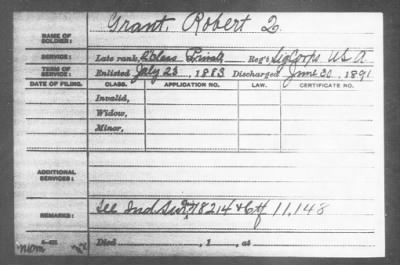 NAME OF SOLDIER: Grant, Robert Q.
SERVICE: Late rank, 2 Class Private Reg't Sig Corps U S A
TERM OF SERVICE: Enlisted July 23, 1883 Discharged June 30, 1891
DATE OF FILING. CLASS. APPLICATION NO. LAW. CERTIFICATE NO.
Invalid,
Widow,
Minor,
ADDITIONAL SERVICES:
REMARKS: See Ind Sur 78214 & Ctf 11,148
Died , 1 , at